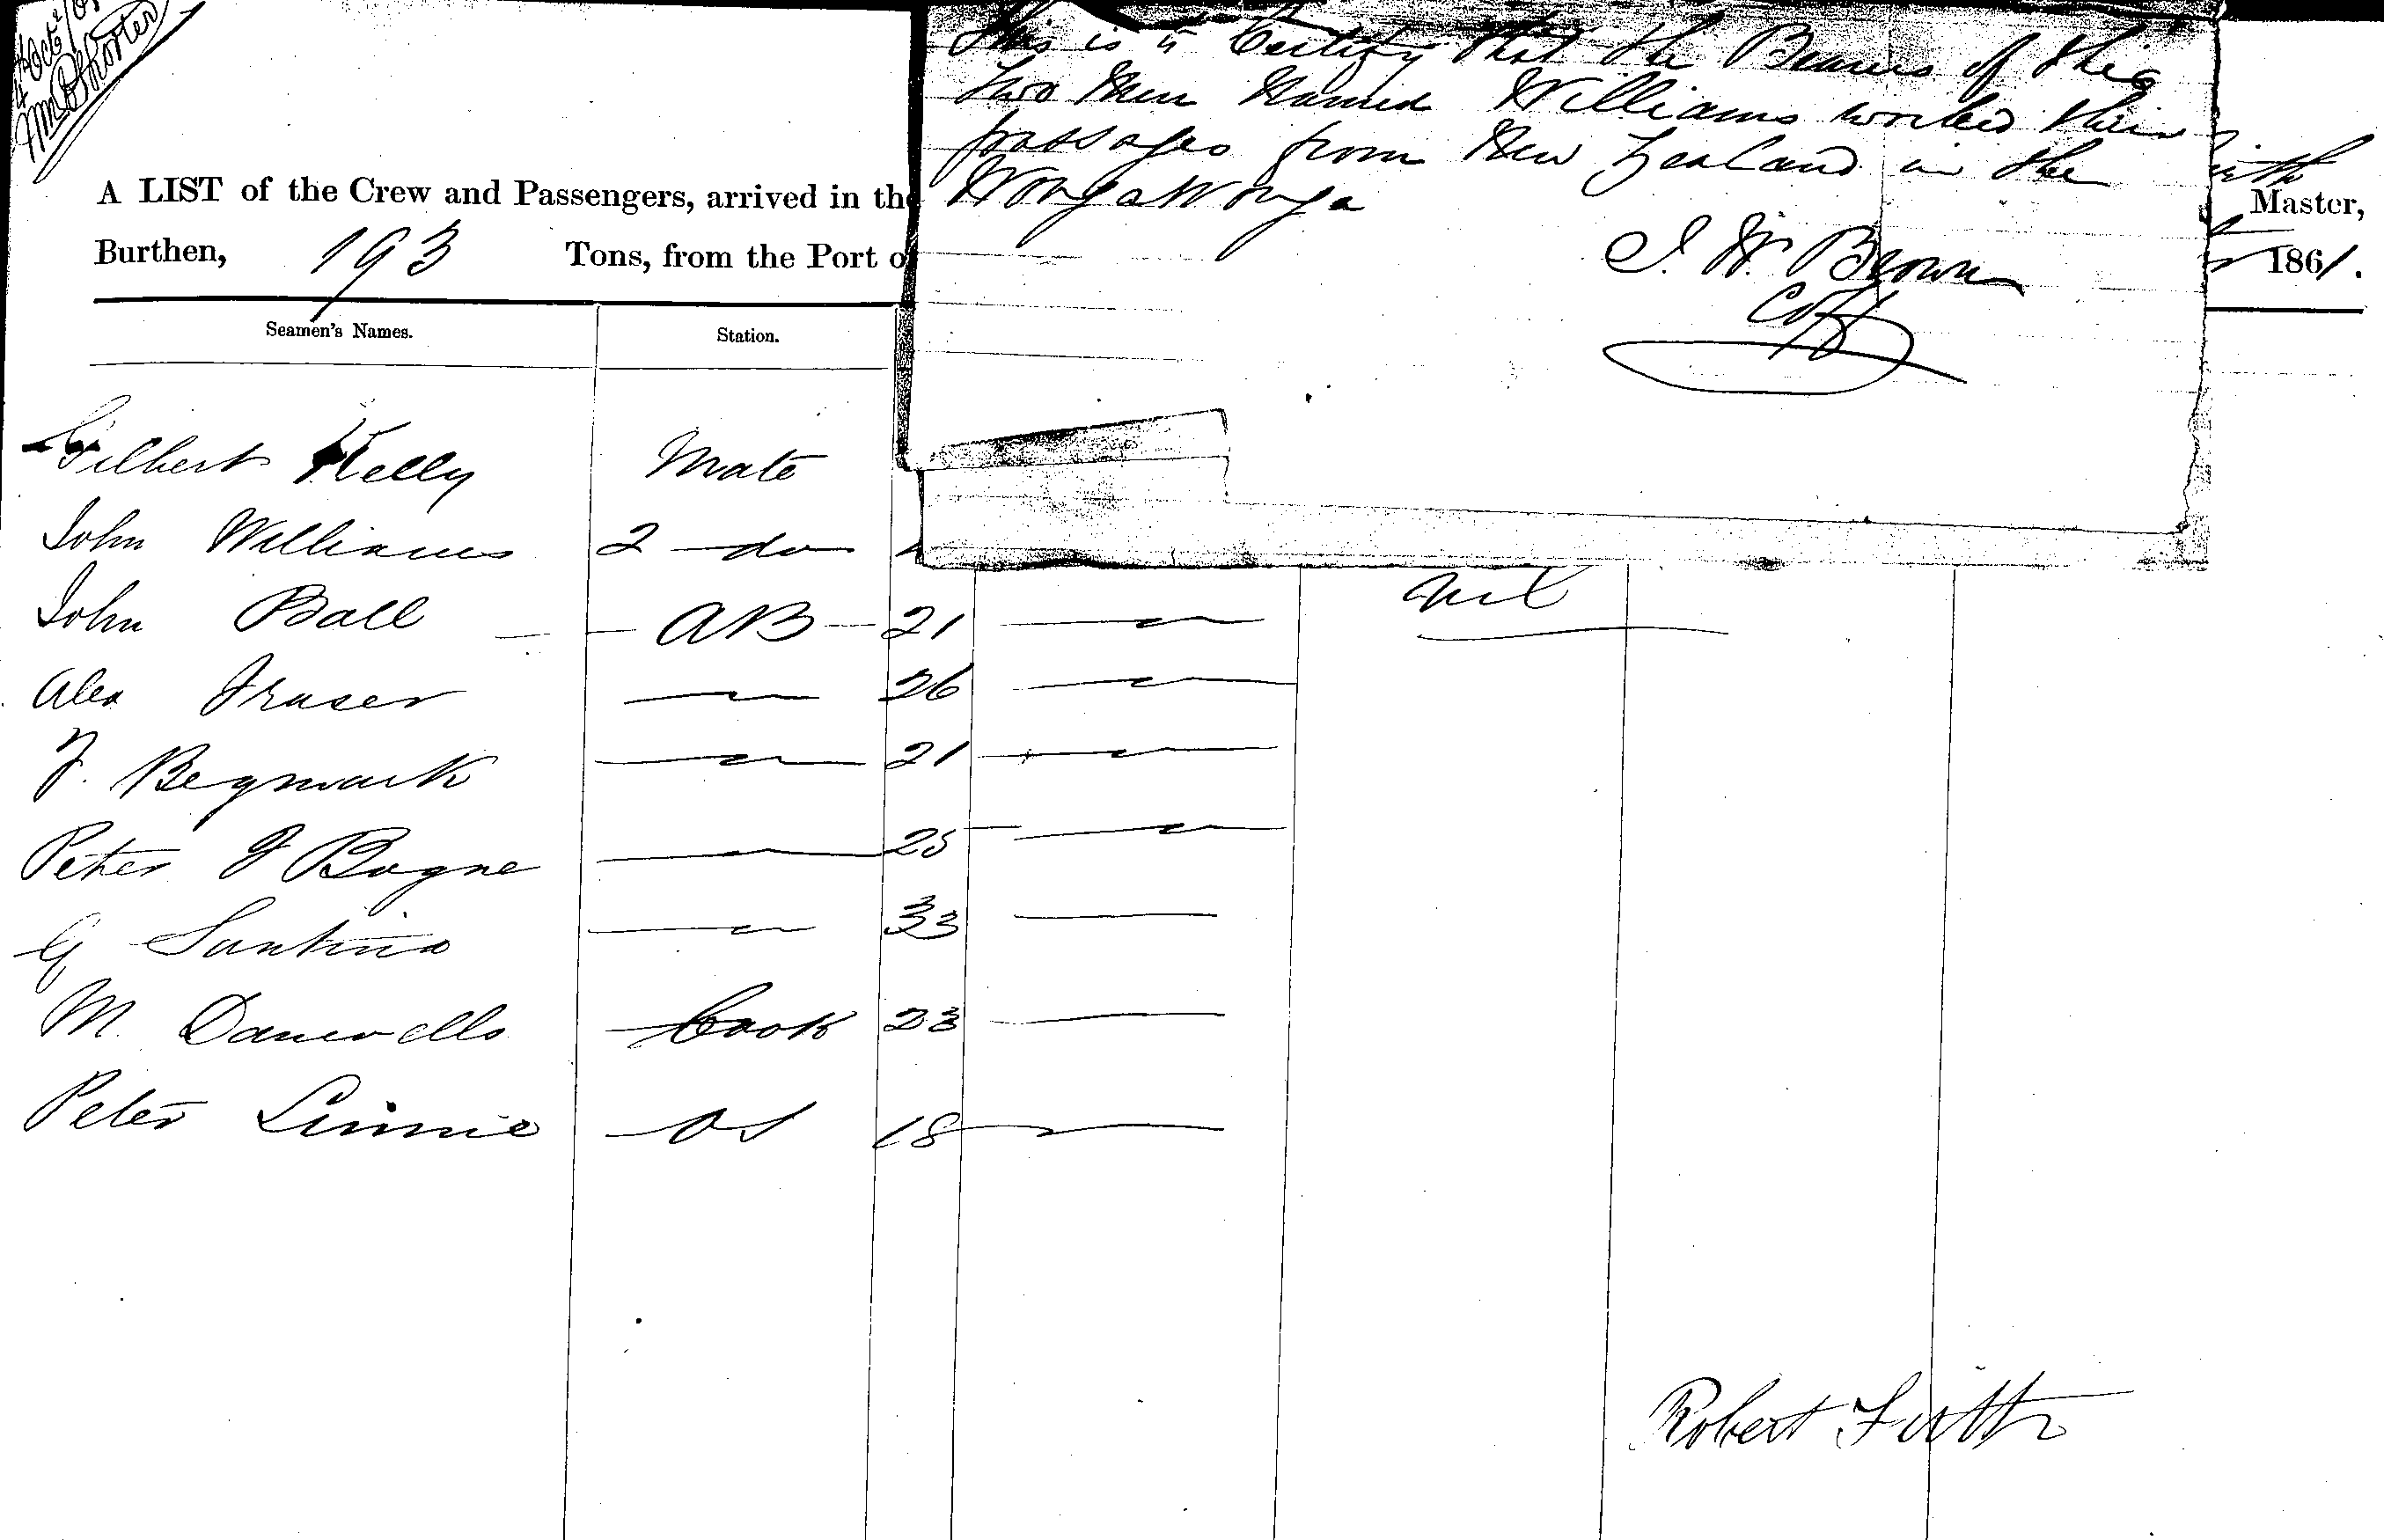 4 Oct
Wm B Shorter
This is to Certify that the Bearers of this
two Men Named Williams worked their
passages from New Zealand in the
WongaWonga
J. W. Brown
A LIST of the Crew and Passengers, arrived in the
Master,
Burthen, 193 Tons, from the Port o
1861.
Seamen's Names. Station.
Gilbert Kelly Mate
John Williams 2 do
John Ball AB 21 Nil
Alex Fraser 26
F. Begmark 21
Peter J Bogne 25
G Santino 33
M. Cook 23
Peter Linnie OS 18
Robert Firth